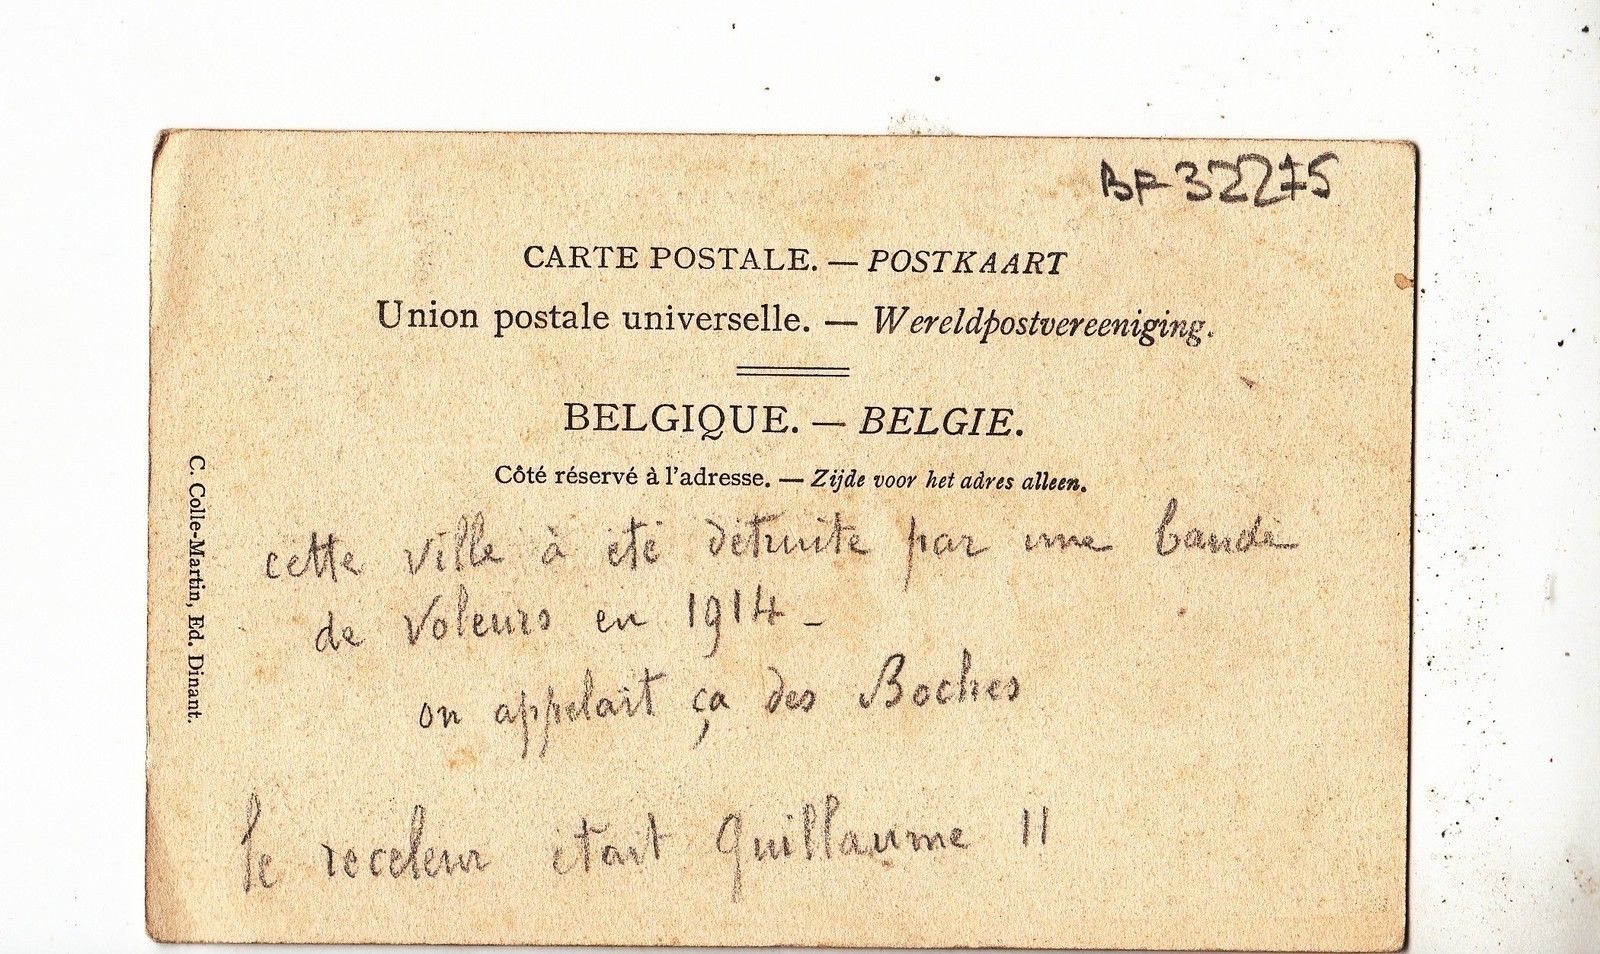 BF 32275
CARTE POSTALE. — POSTKAART
Union postale universelle. — Wereldpostvereeniging.
BELGIQUE. — BELGIE.
Côté réservé à l'adresse. — Zijde voor het adres alleen.
cette ville à été détruite par une bande
de voleurs en 1914 -
on appelait ça des Boches
Le receleur était Guillaume II
C. Colle-Martin, Ed. Dinant.